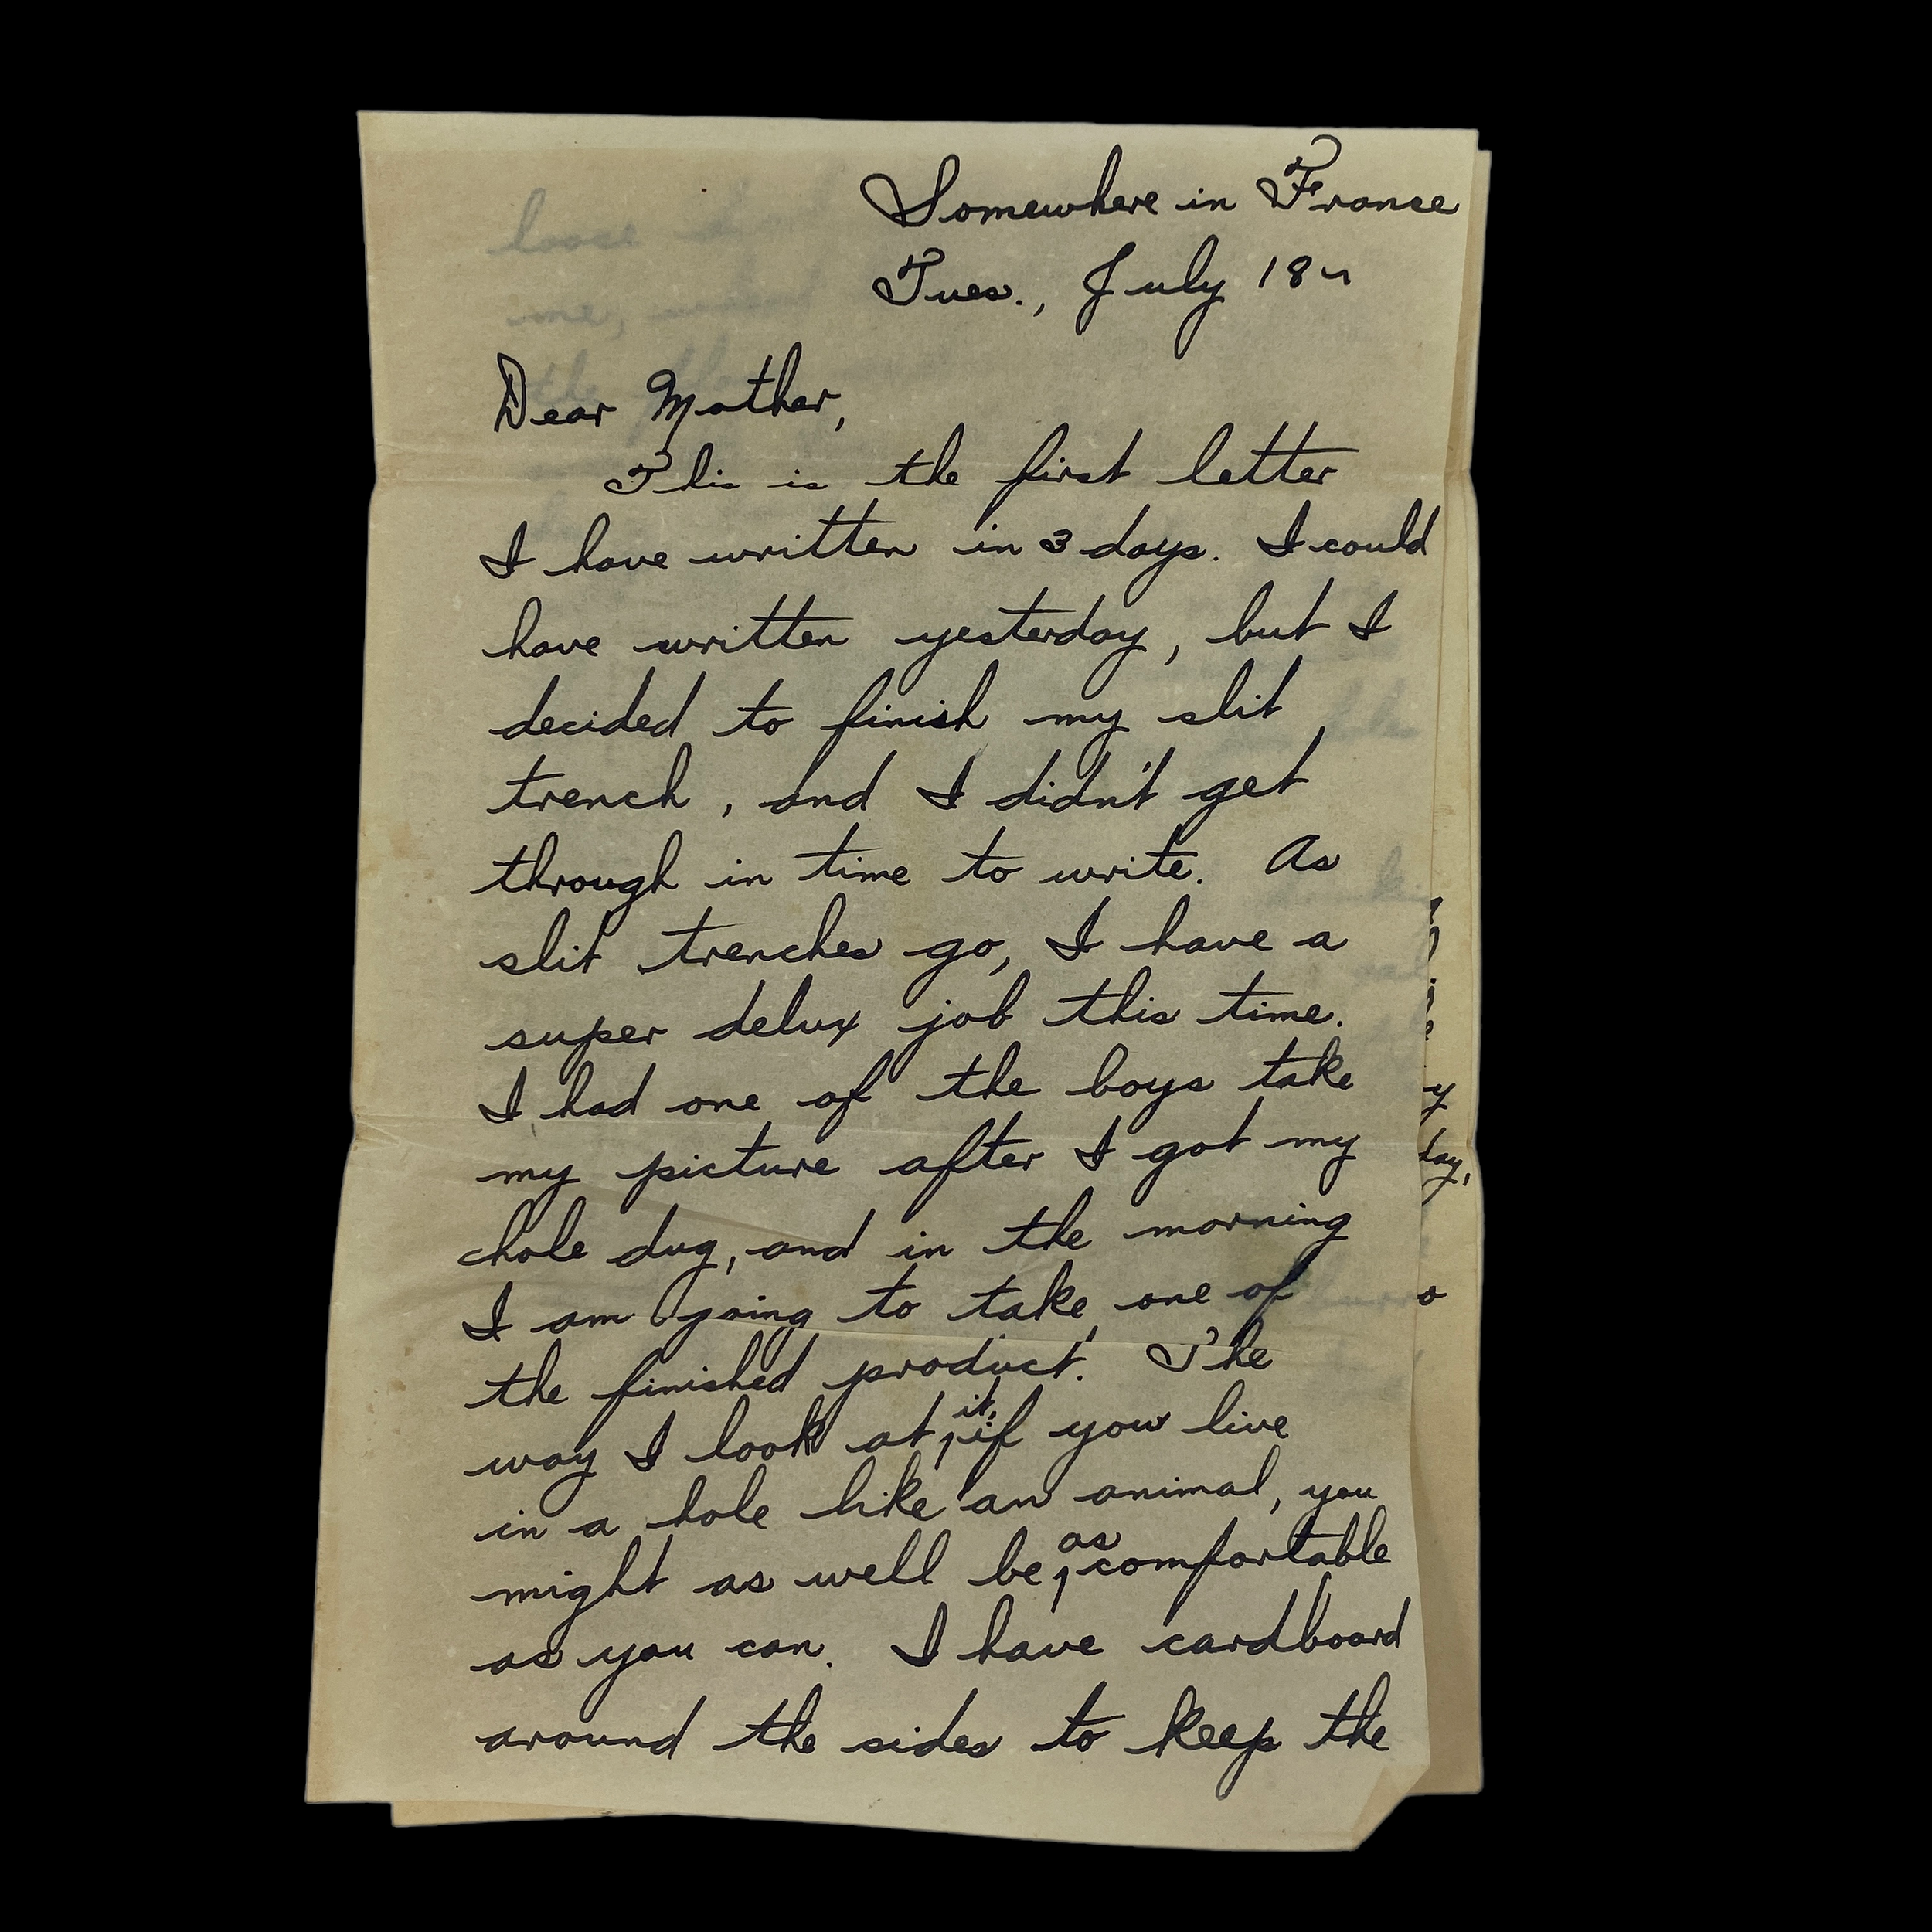 Somewhere in France
Tues., July 18
Dear Mother,
This is the first letter
I have written in 3 days. I could
have written yesterday, but I
decided to finish my slit
trench, and I didn't get
through in time to write. As
slit trenches go, I have a
super delux job this time.
I had one of the boys take
my picture after I got my
hole dug, and in the morning
I am going to take one of
the finished product. The
way I look at it, if you live
in a hole like an animal, you
might as well be as comfortable
as you can. I have cardboard
around the sides to keep the